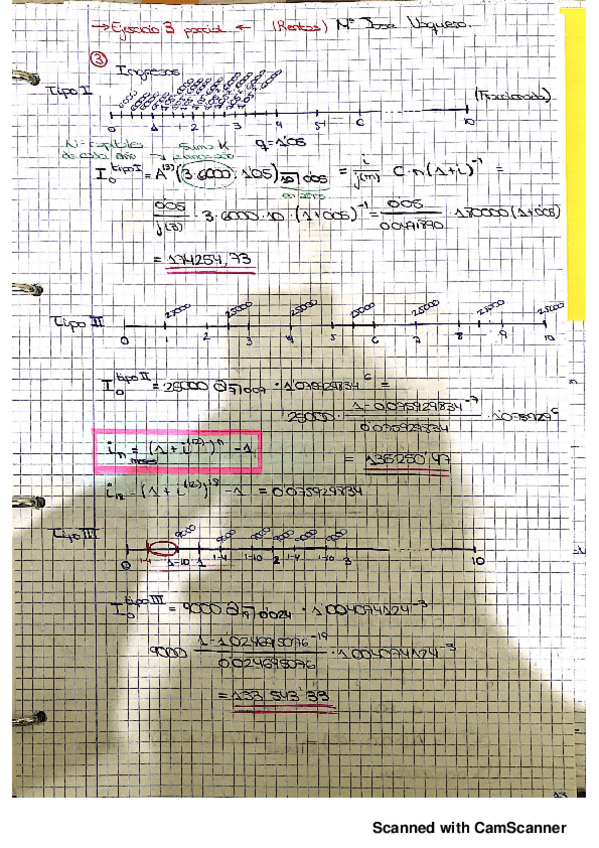 → Ejercicio 3 parcial ← (Rentas) Mª Jose Vaquero.
③
Ingresos
Tipo I
(Fraccionada)
0 1 2 3 4 5 6 10
N = capitales
de cada año → suma K
q = 1'05
I₀ tipo I = A⁽³⁾(3·6000, 1'05) 10¬ 0'05 = i/j(m) · C · n (1+i)⁻¹ =
0'05/j(3) · 3·6000·10 · (1+0'05)⁻¹ = 0'05/0'0491890 · 180000 (1+0'05)
= 174254,73
25000 25000 25000 25000 25000 25000 25000
Tipo II
0 1 2 3 4 5 6 7 8 9 10
I₀ tipo II = 25000 a 7¬ 0'07 · 1'075929834⁶ =
25000 · 1-0'075929834⁻⁷/0'075929834 · 1'075929⁶
iₙ = (1+i⁽¹²⁾)ⁿ -1
= 136250'47
i₁₂ = (1+i⁽¹²⁾)¹² -1 = 0'075929834
Tipo III
9000 9000 9000 9000 9000 9000
0 1-4 1-10 1 1-4 1-10 2 1-4 1-10 3 10
I₀ tipo III = 9000 a 19¬ 0'024 · 1'004074124⁻³
9000 · 1-1'024695076⁻¹⁹/0'024695076 · 1'004074124⁻³
= 133.543'39
Scanned with CamScanner